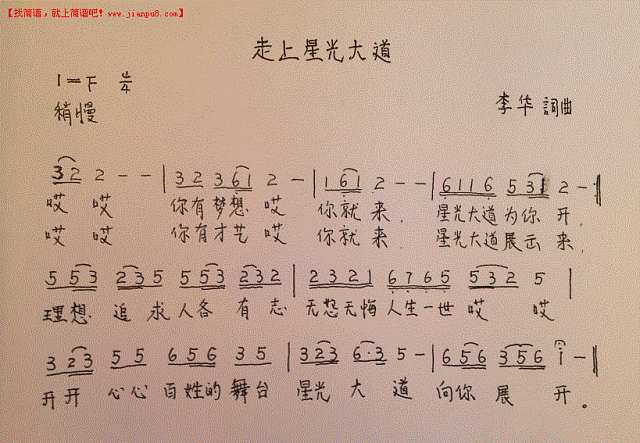 【找简谱，就上简谱吧！www.jianpu8.com】
走上星光大道
1=F 4/4
稍慢
李华 詞曲
3 2 2 - - | 3 2 3 6 1 2 - | 1 6 1 2 - - | 6 1 1 6 5 3 1 2 - ‖
哎 哎 你有梦想 哎 你就 来， 星光大道为你 开，
哎 哎 你有才艺 哎 你就 来， 星光大道展示 来，
5 5 3 2 3 5 5 5 3 2 3 2 | 2 3 2 1 6 7 6 5 5 3 2 5 |
理想 追 求人各 有志 无怨无悔人生一世哎 哎
3 2 3 5 5 6 5 6 3 5 | 3 2 3 6 · 3 5 - | 6 5 6 3 5 6 i - ‖
开开 心心 百姓的舞台 星光 大 道 向你 展 开。